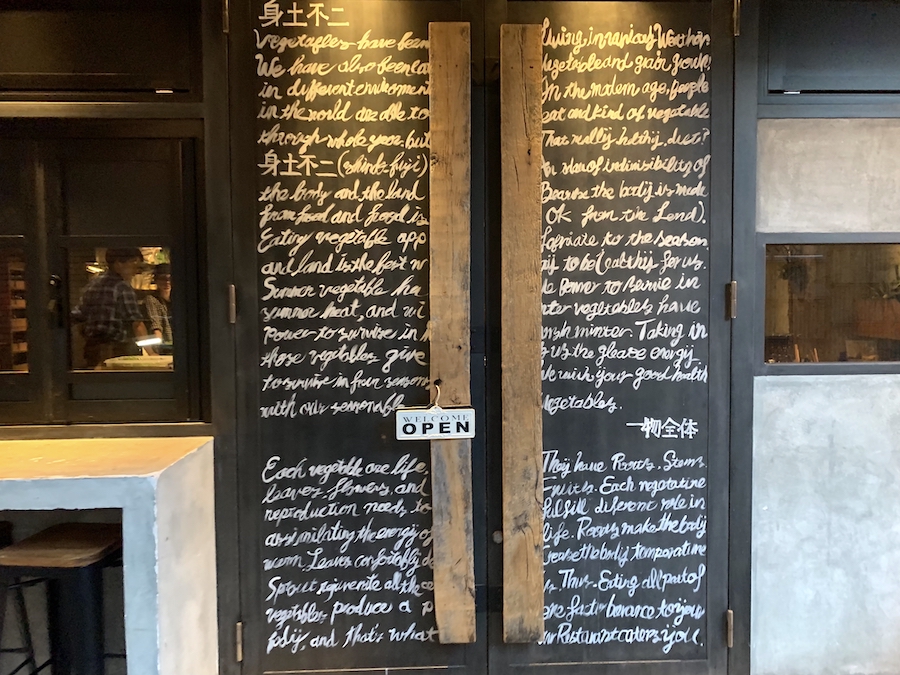 身土不二
Vegetables have been living in various Weather.
We have also been eat vegetable and grain grown
in different enviroment In the modern age, people
in the world are able to eat and kind of vegetable
through whole year. but That really healthy diet?
身土不二 (shindo fuji) An idea of indivisibility of
the body and the land Because the body is made
from food and food is OK from the Land).
Eating vegetable app to the season
and land is the best w to be healthy for us.
Summer vegetable ha Power to in
summer heat, and wi vegetables have
Power to survive in h Taking in
those vegetables give us the energy
to survive in four seasons We wish your good health
with our seasonable vegetables.
WELCOME
OPEN
一物全体
Each vegetable are life. They have Roots. Stems.
leaves. flowers. and Each
reproduction needs to fulfill diferent role in
assimilating the energy of life. Roots make the body
warm. Leaves confortably de the body temparature
Sprout rejuvenate all the ce Thus. Eating all part of
vegetables produce a p balance to your
body, and that's what our Restaurant caters you.